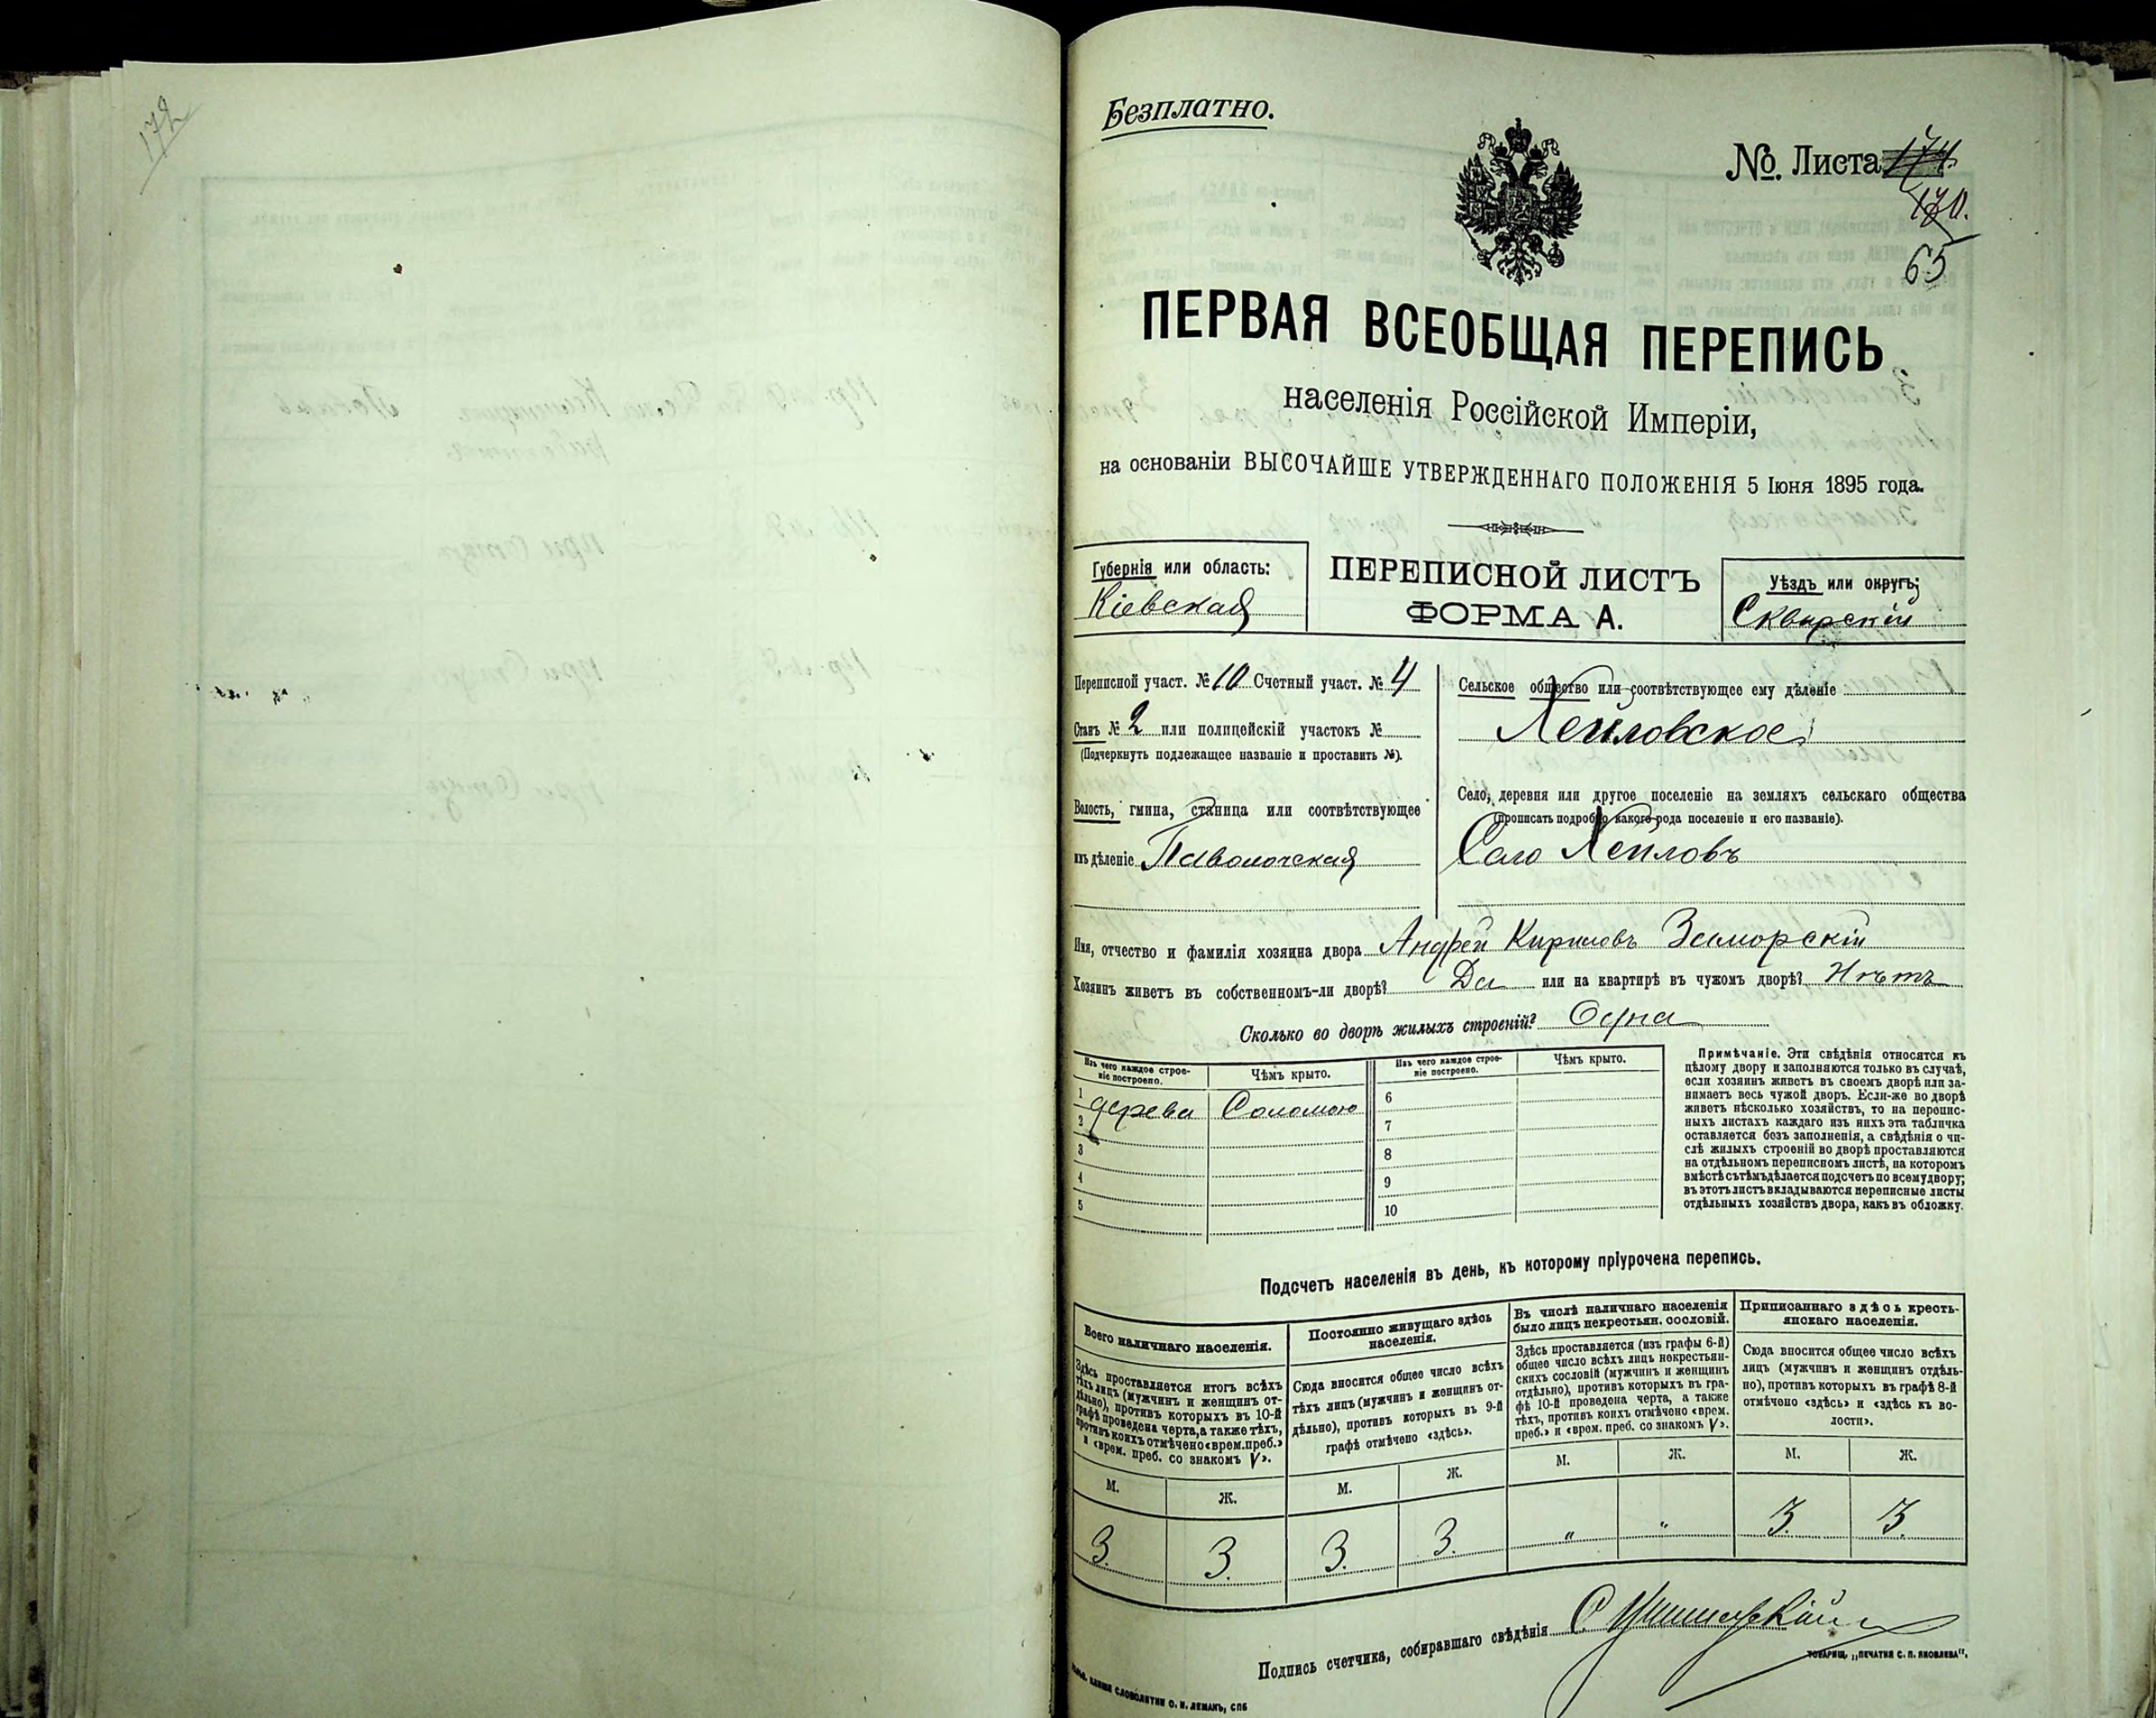 172
Безплатно.
№. Листа 174.
170.
65
ПЕРВАЯ ВСЕОБЩАЯ ПЕРЕПИСЬ
населенія Россійской Имперіи,
на основаніи ВЫСОЧАЙШЕ УТВЕРЖДЕННАГО ПОЛОЖЕНІЯ 5 Іюня 1895 года.
Губернія или область:
Кіевская
ПЕРЕПИСНОЙ ЛИСТЪ
ФОРМА А.
Уѣздъ или округъ;
Сквирскій
Переписной участ. № 10 Счетный участ. № 4
Станъ № 2 или полицейскій участокъ №
(Подчеркнуть подлежащее названіе и проставить №).
Волость, гмина, станица или соотвѣтствующее
имъ дѣленіе Паволочская
Сельское общество или соотвѣтствующее ему дѣленіе
Хейловское
Село, деревня или другое поселеніе на земляхъ сельскаго общества
(прописать подробно какого рода поселеніе и его названіе).
Село Хейловъ
Имя, отчество и фамилія хозяина двора Андрей Кириловъ Зиморскій
Хозяинъ живетъ въ собственномъ-ли дворѣ? Да или на квартирѣ въ чужомъ дворѣ? Нѣтъ
Сколько во дворѣ жилыхъ строеній? Одна
Изъ чего каждое строе-
ніе построено.
Чѣмъ крыто.
Изъ чего каждое строе-
ніе построено.
Чѣмъ крыто.
1 дерева Соломою 6
2 7
3 8
4 9
5 10
Примѣчаніе. Эти свѣдѣнія относятся къ
цѣлому двору и заполняются только въ случаѣ,
если хозяинъ живетъ въ своемъ дворѣ или за-
нимаетъ весь чужой дворъ. Если-же во дворѣ
живетъ нѣсколько хозяйствъ, то на перепис-
ныхъ листахъ каждаго изъ нихъ эта табличка
оставляется безъ заполненія, а свѣдѣнія о чи-
слѣ жилыхъ строеній во дворѣ проставляются
на отдѣльномъ переписномъ листѣ, на которомъ
вмѣстѣ съ тѣмъ дѣлается подсчетъ по всему двору;
въ этотъ листъ вкладываются переписные листы
отдѣльныхъ хозяйствъ двора, какъ въ обложку.
Подсчетъ населенія въ день, къ которому пріурочена перепись.
Всего наличнаго населенія.
Здѣсь проставляется итогъ всѣхъ
тѣхъ лицъ (мужчинъ и женщинъ от-
дѣльно), противъ которыхъ въ 10-й
графѣ проведена черта, а также тѣхъ,
противъ коихъ отмѣчено «врем. преб.»
и «врем. преб. со знакомъ V».
Постоянно живущаго здѣсь
населенія.
Сюда вносится общее число всѣхъ
тѣхъ лицъ (мужчинъ и женщинъ от-
дѣльно), противъ которыхъ въ 9-й
графѣ отмѣчено «здѣсь».
Въ числѣ наличнаго населенія
было лицъ некрестьян. сословій.
Здѣсь проставляется (изъ графы 6-й)
общее число всѣхъ лицъ некрестьян-
скихъ сословій (мужчинъ и женщинъ
отдѣльно), противъ которыхъ въ гра-
фѣ 10-й проведена черта, а также
тѣхъ, противъ коихъ отмѣчено «врем.
преб.» и «врем. преб. со знакомъ V».
Приписаннаго здѣсь кресть-
янскаго населенія.
Сюда вносится общее число всѣхъ
лицъ (мужчинъ и женщинъ отдѣль-
но), противъ которыхъ въ графѣ 8-й
отмѣчено «здѣсь» и «здѣсь къ во-
лости».
М. Ж. М. Ж. М. Ж. М. Ж.
3. 3. 3. 3. " " 3. 3.
Подпись счетчика, собиравшаго свѣдѣнія
ТОВАРИЩ. „ПЕЧАТНЯ С. П. ЯКОВЛЕВА".
СЛОВОЛИТНИ О. И. ЛЕМАНЪ, СПБ